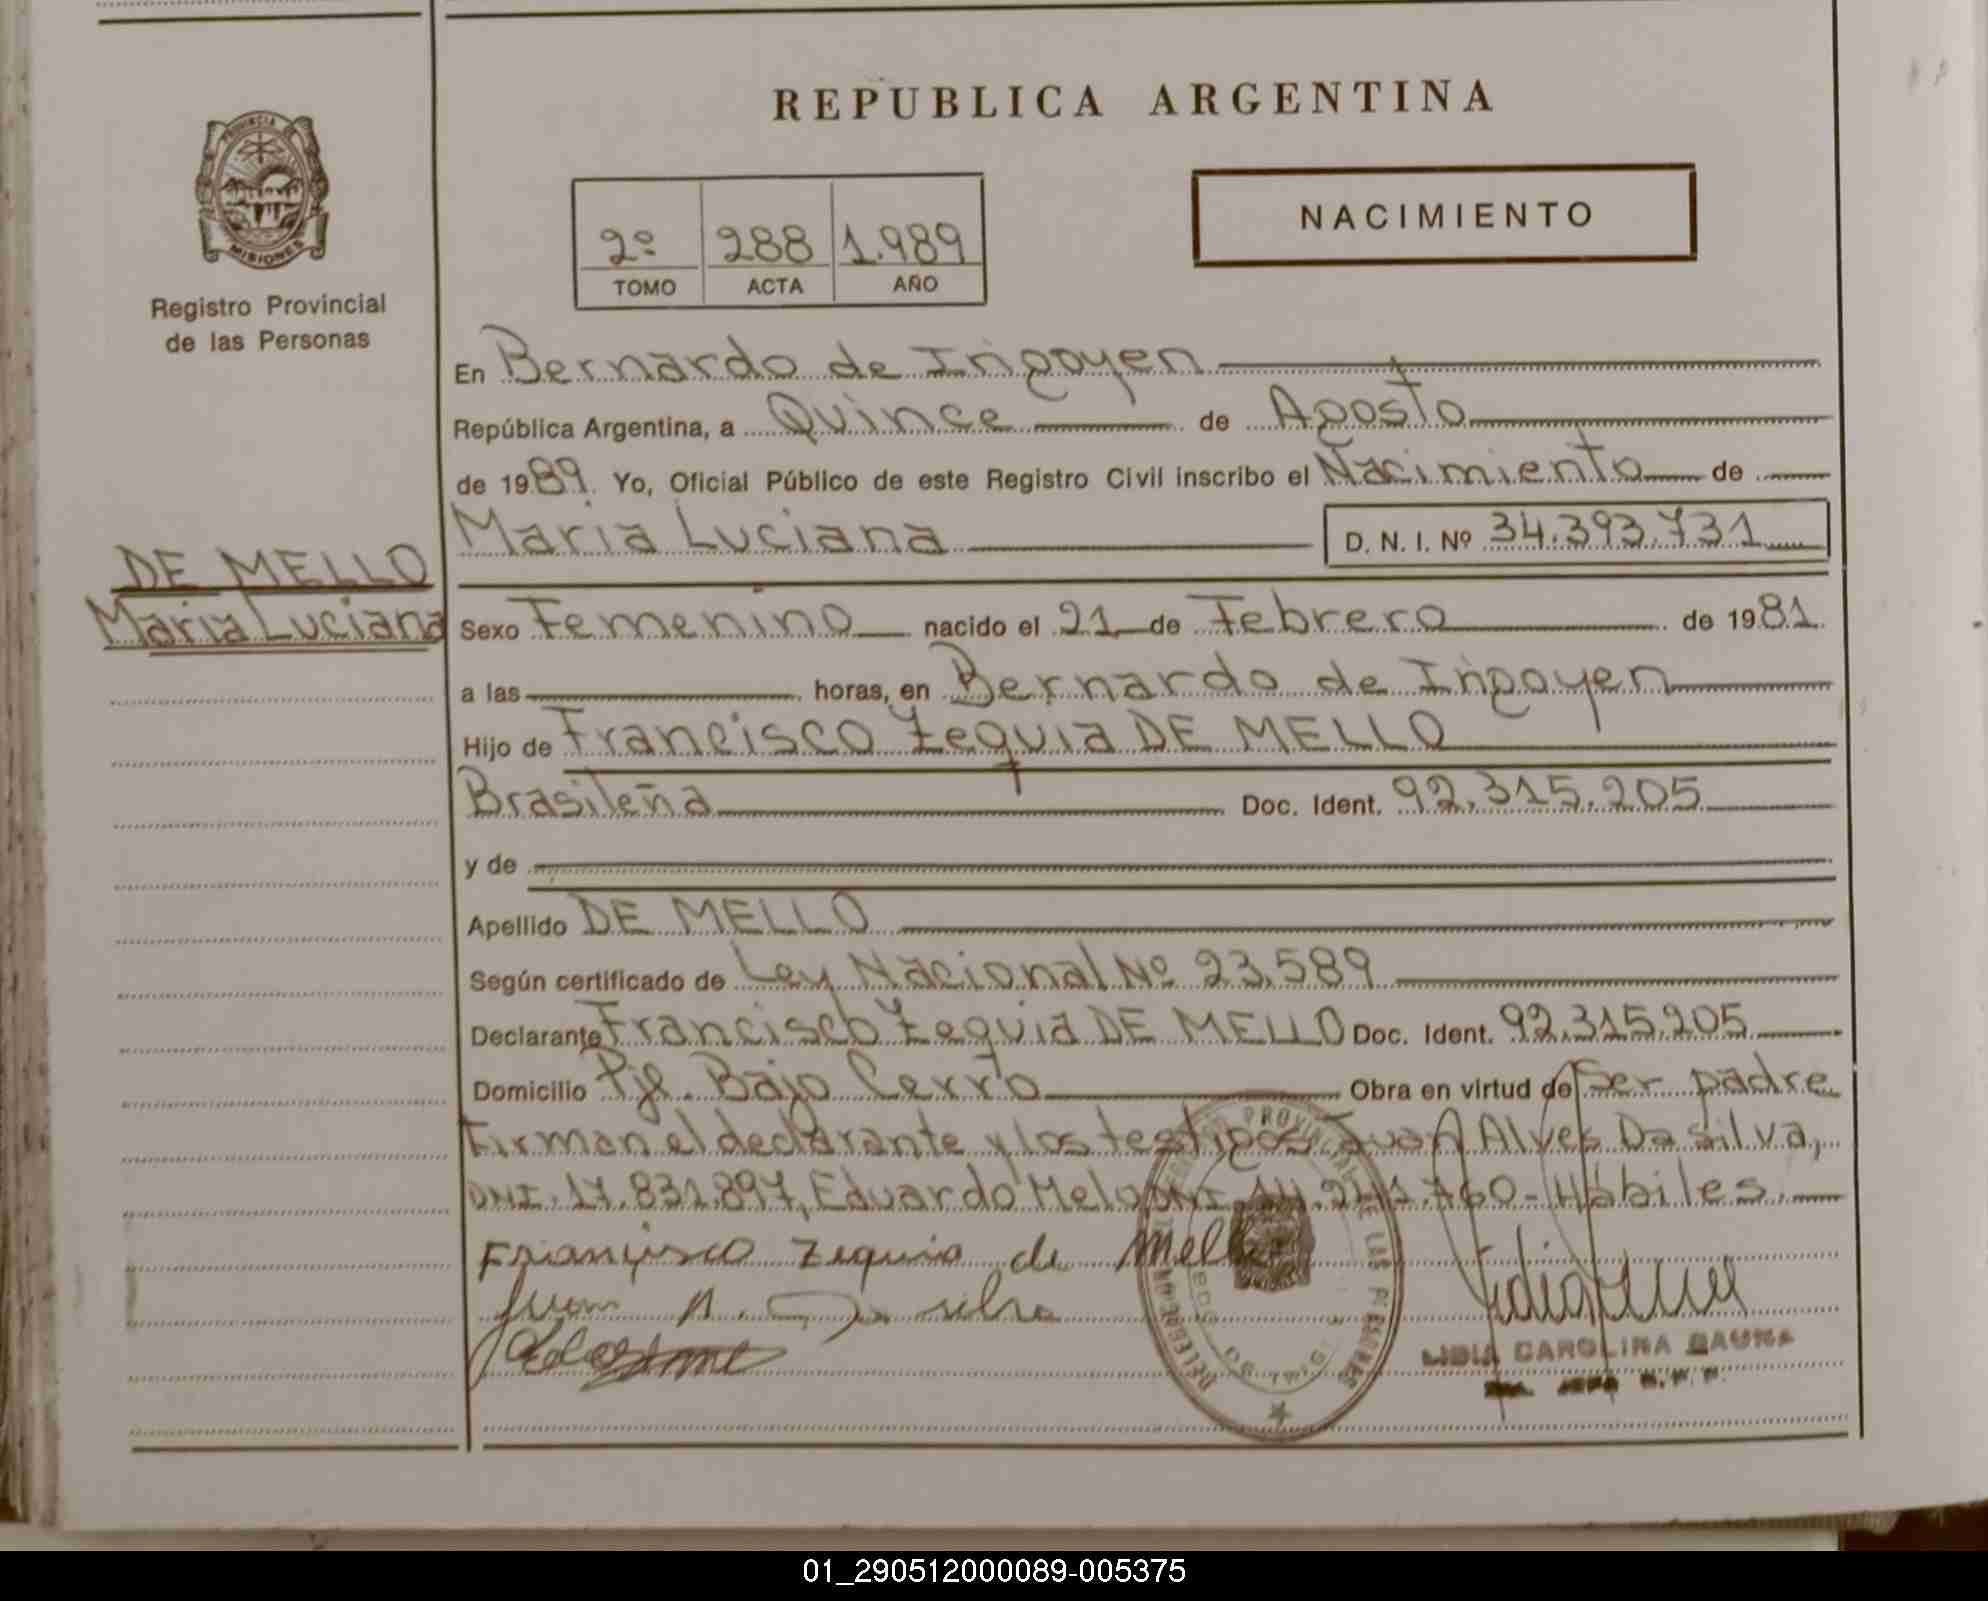 REPUBLICA ARGENTINA
PROVINCIA DE
MISIONES
Registro Provincial
de las Personas
2º 288 1.989
TOMO ACTA AÑO
NACIMIENTO
DE MELLO
Maria Luciana
En Bernardo de Irigoyen
República Argentina, a Quince de Agosto
de 1989. Yo, Oficial Público de este Registro Civil inscribo el Nacimiento de
Maria Luciana D. N. I. Nº 34.393.731
Sexo Femenino nacido el 21 de Febrero de 1981.
a las horas, en Bernardo de Irigoyen
Hijo de Francisco Zequia DE MELLO
Brasileña Doc. Ident. 92.315.205
y de
Apellido DE MELLO
Según certificado de Ley Nacional Nº 23.589
Declarante Francisco Zequia DE MELLO Doc. Ident. 92.315.205
Domicilio Pje. Bajo Cerro Obra en virtud de Ser padre
Firman el declarante y los testigos Juan Alves Da Silva,
DNI. 17.831.897, Eduardo Melo DNI 760- Hábiles.
Francisco Zequia de Mello
Juan A. Da silva
LIDIA CAROLINA
01_290512000089-005375